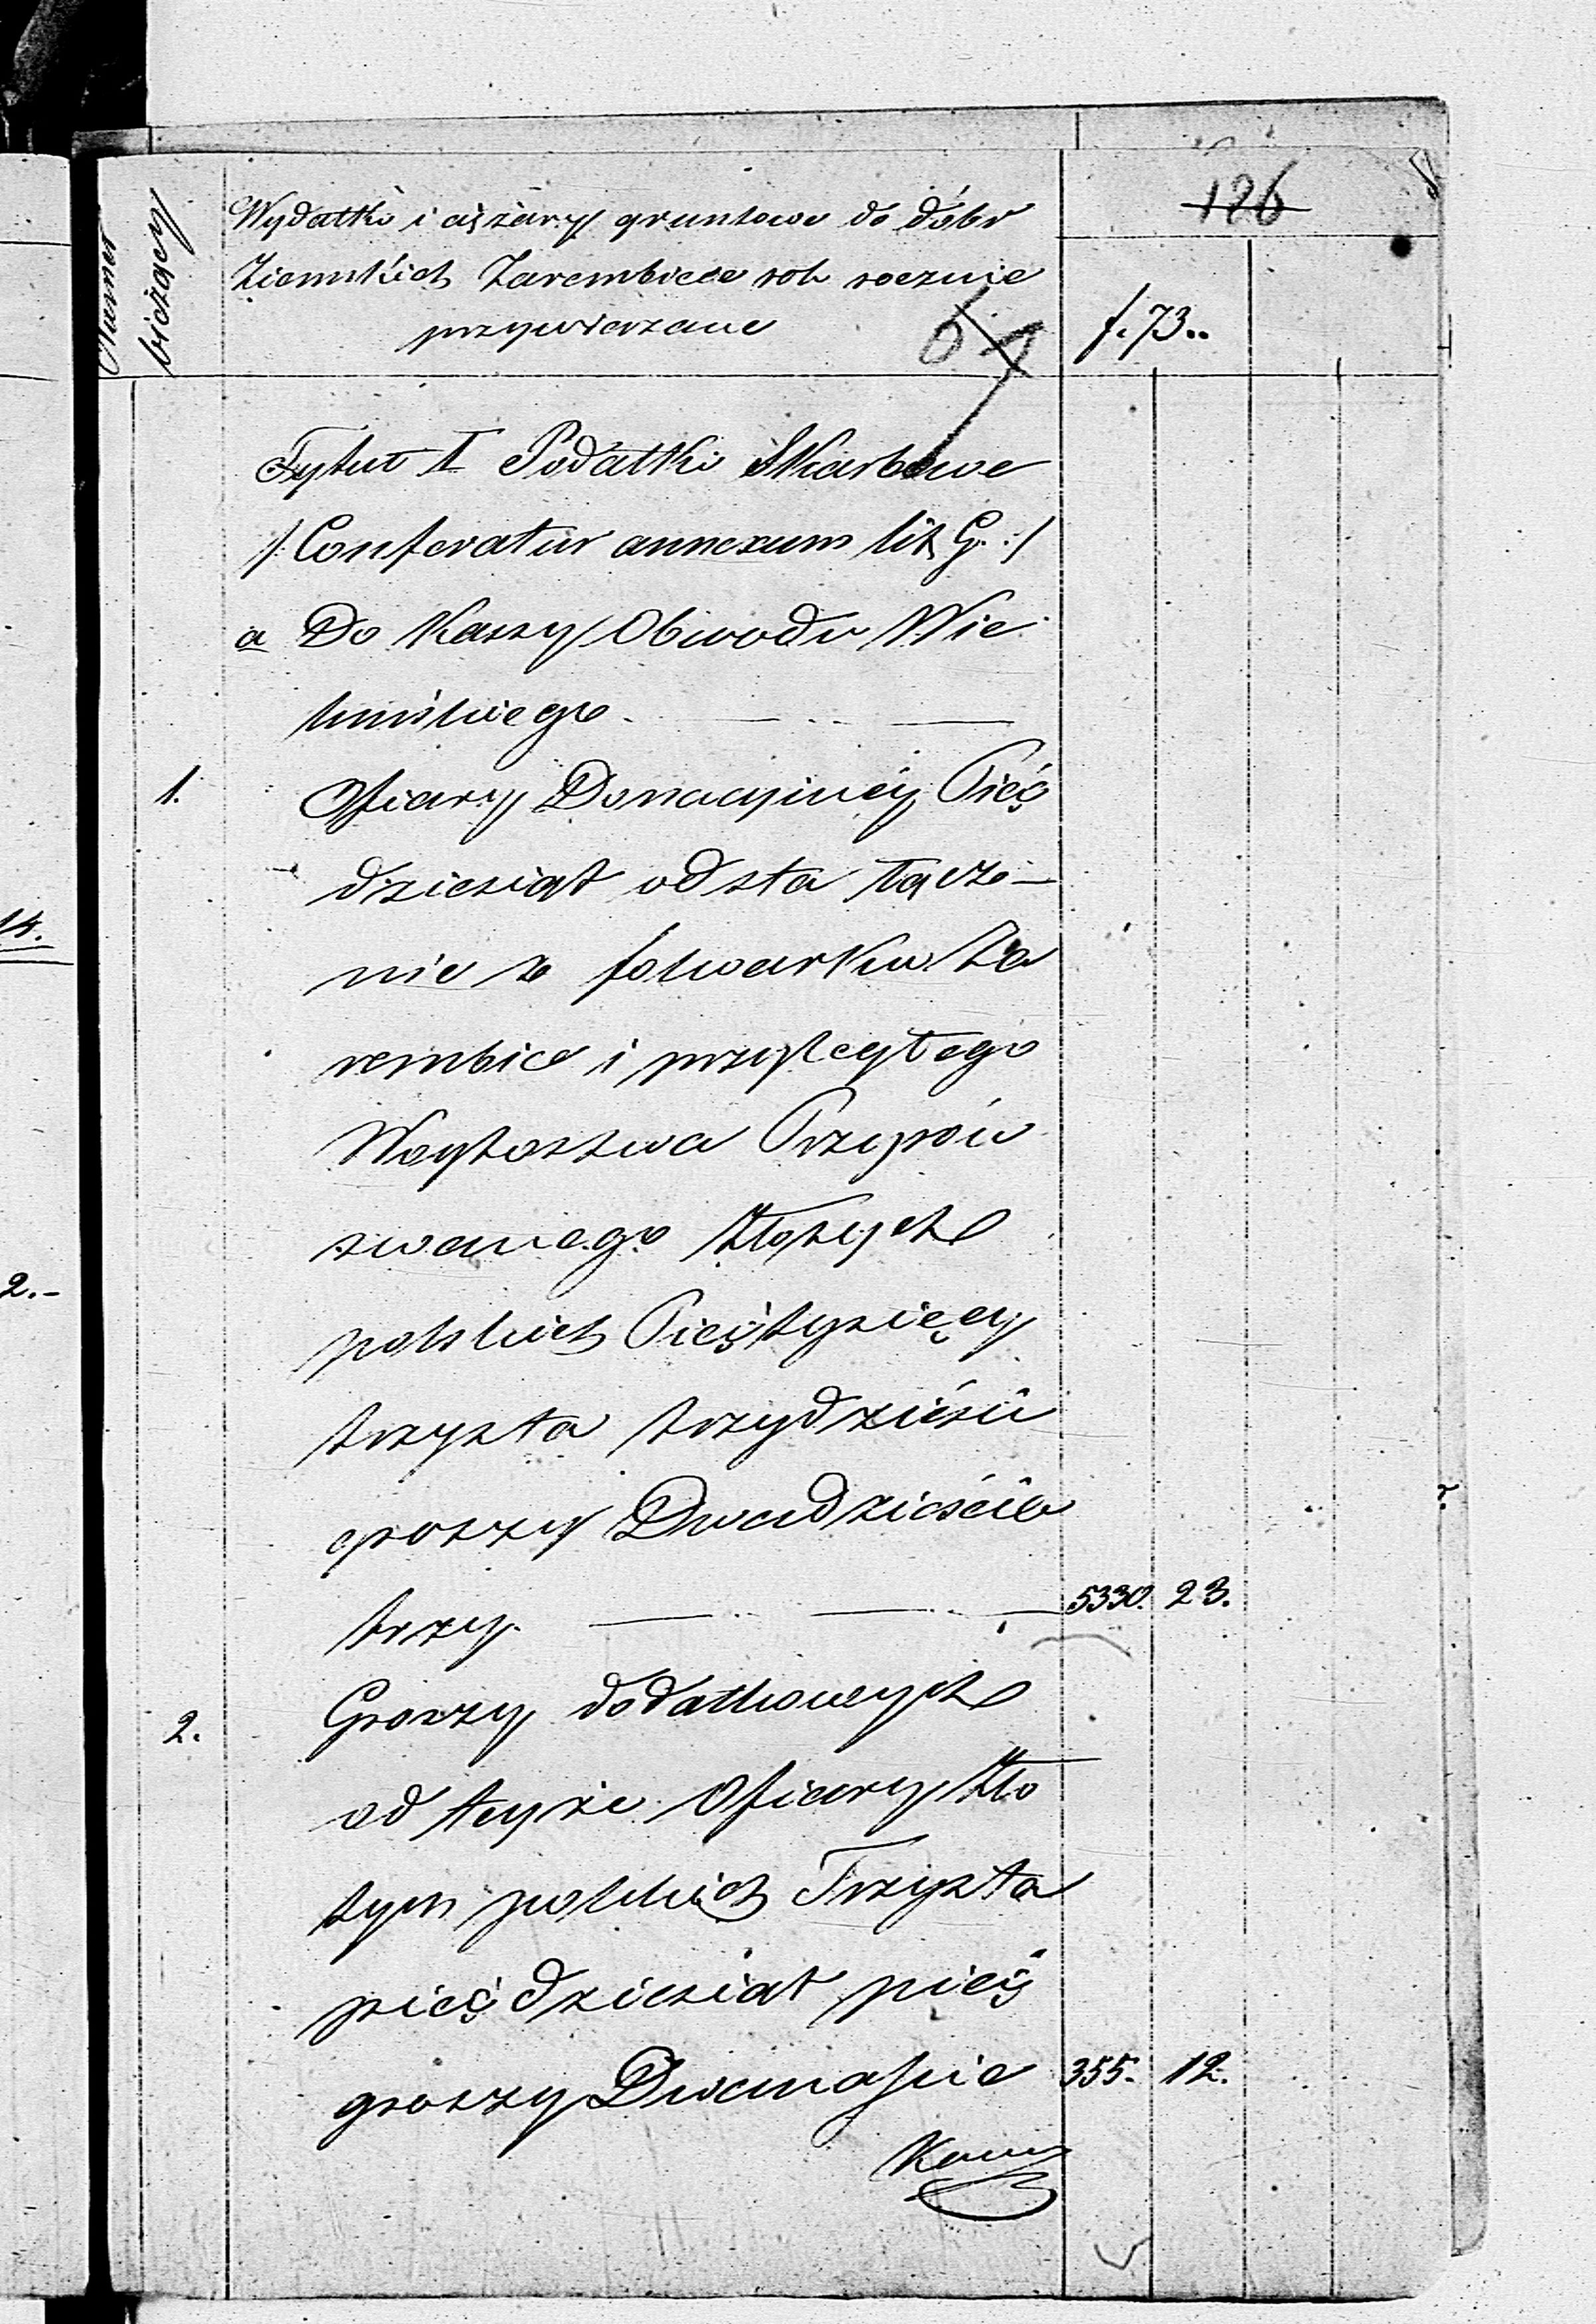 126
Numer bieżący
Wydatki i ciężary gruntowe do dóbr
Ziemskich Zarembice rok rocznie
przywiązane
f. 73..
Tytuł I Podatki Skarbowe
/: Conferatur annexum lit G. :/
a Do Kassy Obwodu Wie
luńskiego.
1. Ofiary Donacyinéy Pięć
dziesiąt od sta łącz-
nie z folwarku Za
rembice i przyległego
Woytostwa Przyrów
zwanego Złotych
polskich Pięć tysięcy
trzysta trzydzieści
groszy Dwadzieścia
trzy. 5330. 23.
2. Groszy dodatkowych
od teyże Ofiary Zło
tych polskich Trzysta
pięćdziesiąt pięć
groszy Dwanaście 355. 12.
14.
2.-